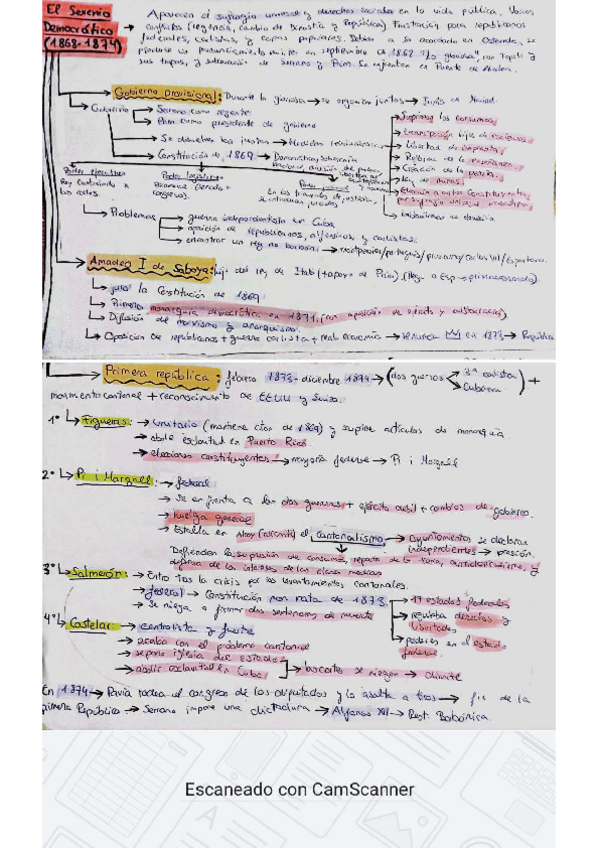 El Sexenio
Democrático
(1868-1874)
Aparecen el sufragio universal y derechos sociales en la vida pública. Varios
conflictos (regencia, cambio de dinastía y República). Frustración para republicanos
federales, carlistas, y capas populares. Debido a lo acordado en Ostende, se
produce un pronunciamiento militar en septiembre de 1868 "La gloriosa", con Topete y
sus tropas, y sublevación de Serrano y Prim. Se enfrentan en Puente de Alcolea.
Gobierno provisional: Durante la gloriosa → se organizan juntas → Junta en Madrid.
Gobierno → Serrano como regente
→ Prim como presidente de gobierno
→ Se disuelven las juntas → Medidas
→ Constitución de 1869 →
→ Suprimir los consumos
→ Emancipación hijos de esclavos
→ Libertad de imprenta
→ Reforma de la enseñanza
→ Creación de la peseta
→ Ley de minas
→ Elección a cortes Constituyentes
por sufragio universal
Poder ejecutivo
Rey
las cortes.
Poder legislativo
Bicameral (senado +
congreso).
Poder judicial
En los tribunales de justicia,
→ Problemas → guerra independentista en Cuba
→ oposición de republicanos, alfonsinos y carlistas.
→ encontrar un rey no borbón →
Amadeo I de Saboya: hijo del rey de Italia (+apoyo de Prim).
→ juró la Constitución de 1869.
→ Primera monarquía democrática en 1871.
→ Difusión del marxismo y anarquismo.
→ Oposición de republicanos + guerra carlista + mala economía → renuncia en 1873 → República
Primera república: febrero 1873-diciembre 1874 → (dos guerras 3ª carlista
Cubana ) +
movimiento cantonal + reconocimiento de EEUU y Suiza.
1º → Figueras: → unitario (mantiene ctos de 1869) y suprime artículos de monarquía.
→ abole esclavitud en Puerto Rico.
→ elecciones constituyentes → mayoría federal → Pi i Margall
2º → Pi i Margall: → federal
→ Se enfrenta a las dos guerras + ejército débil + cambios de gobierno.
→ huelga general
→ Estalla en Alcoy (alicante) el cantonalismo → Ayuntamientos se declaran
independientes → presión.
Defienden la supresión de consumos, reparto de tierra, anticlericalismo, y
defensa de los intereses de las clases medias
3º → Salmerón: → Entró tras la crisis por los levantamientos cantonales.
→ federal → Constitución non nata de 1873.
→ Se niega a firmar dos sentencias de muerte
→ 17 estados federados
→ regulaba derechos y
libertades
→ poderes en el estado
federal.
4º → Castelar: → centralista y fuerte
→ acaba con el problema cantonal
→ separa iglesia del estado
→ abolir esclavitud en Cuba
las cortes se niegan → dimite
En 1874 → Pavía rodea el congreso de los diputados y lo asalta a tiros → fin de la
primera República → Serrano impone una dictadura → Alfonso XII → Rest. Borbónica.
Escaneado con CamScanner